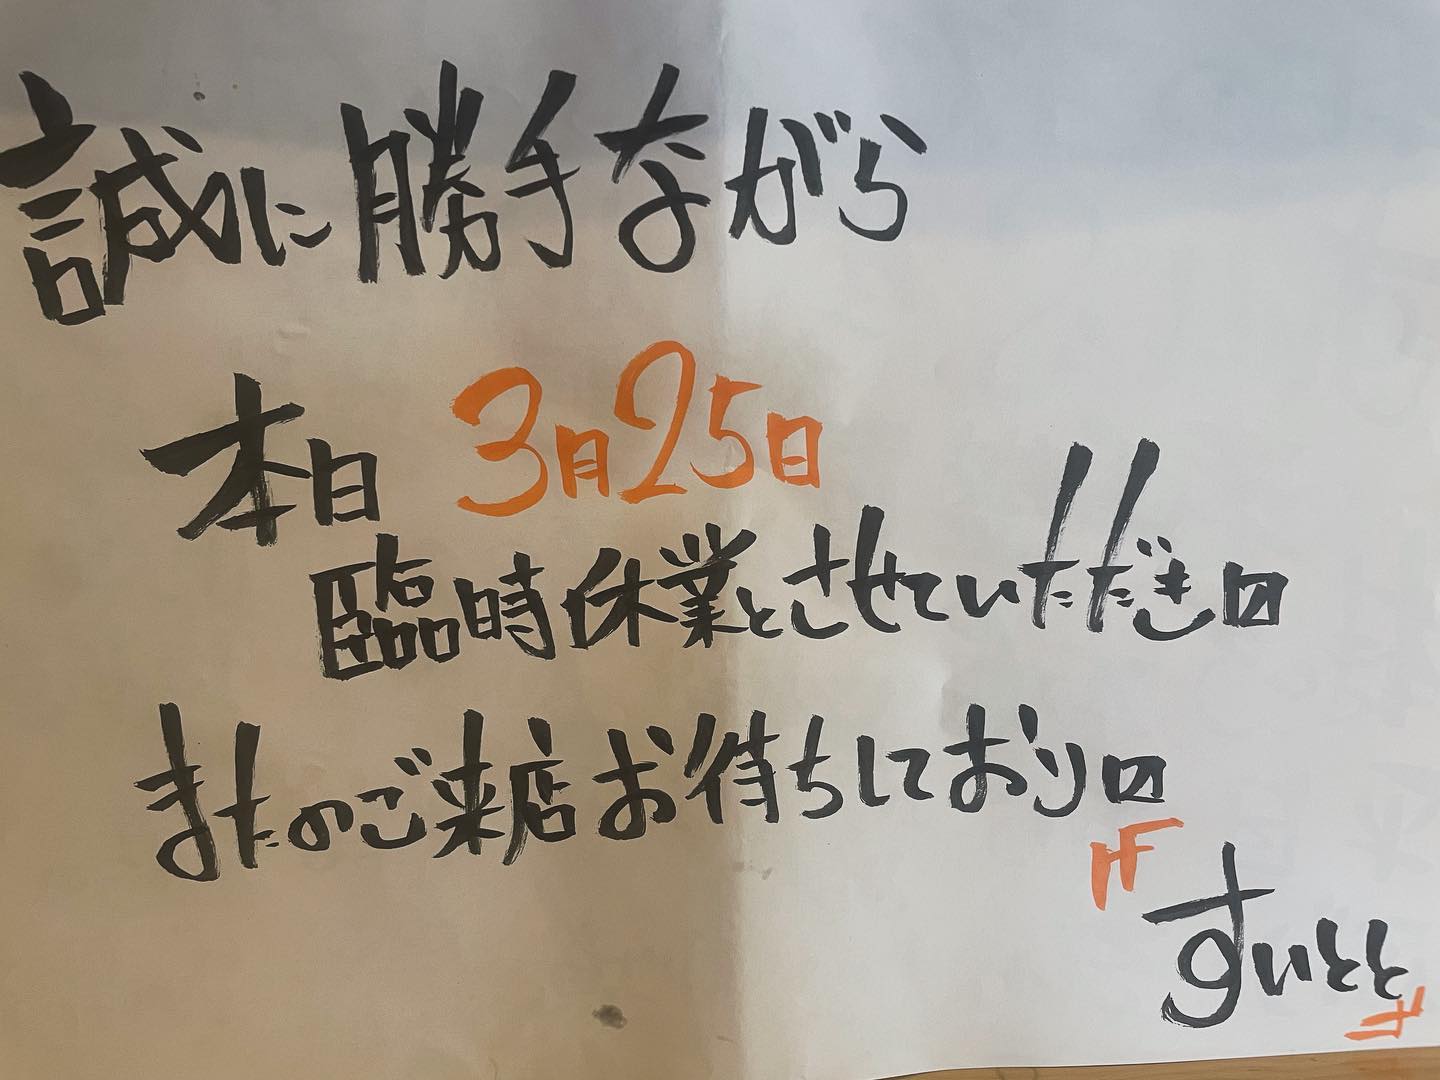 誠に勝手ながら
本日 3月25日
臨時休業とさせていただき〼
またのご来店お待ちしており〼
『すいとと』